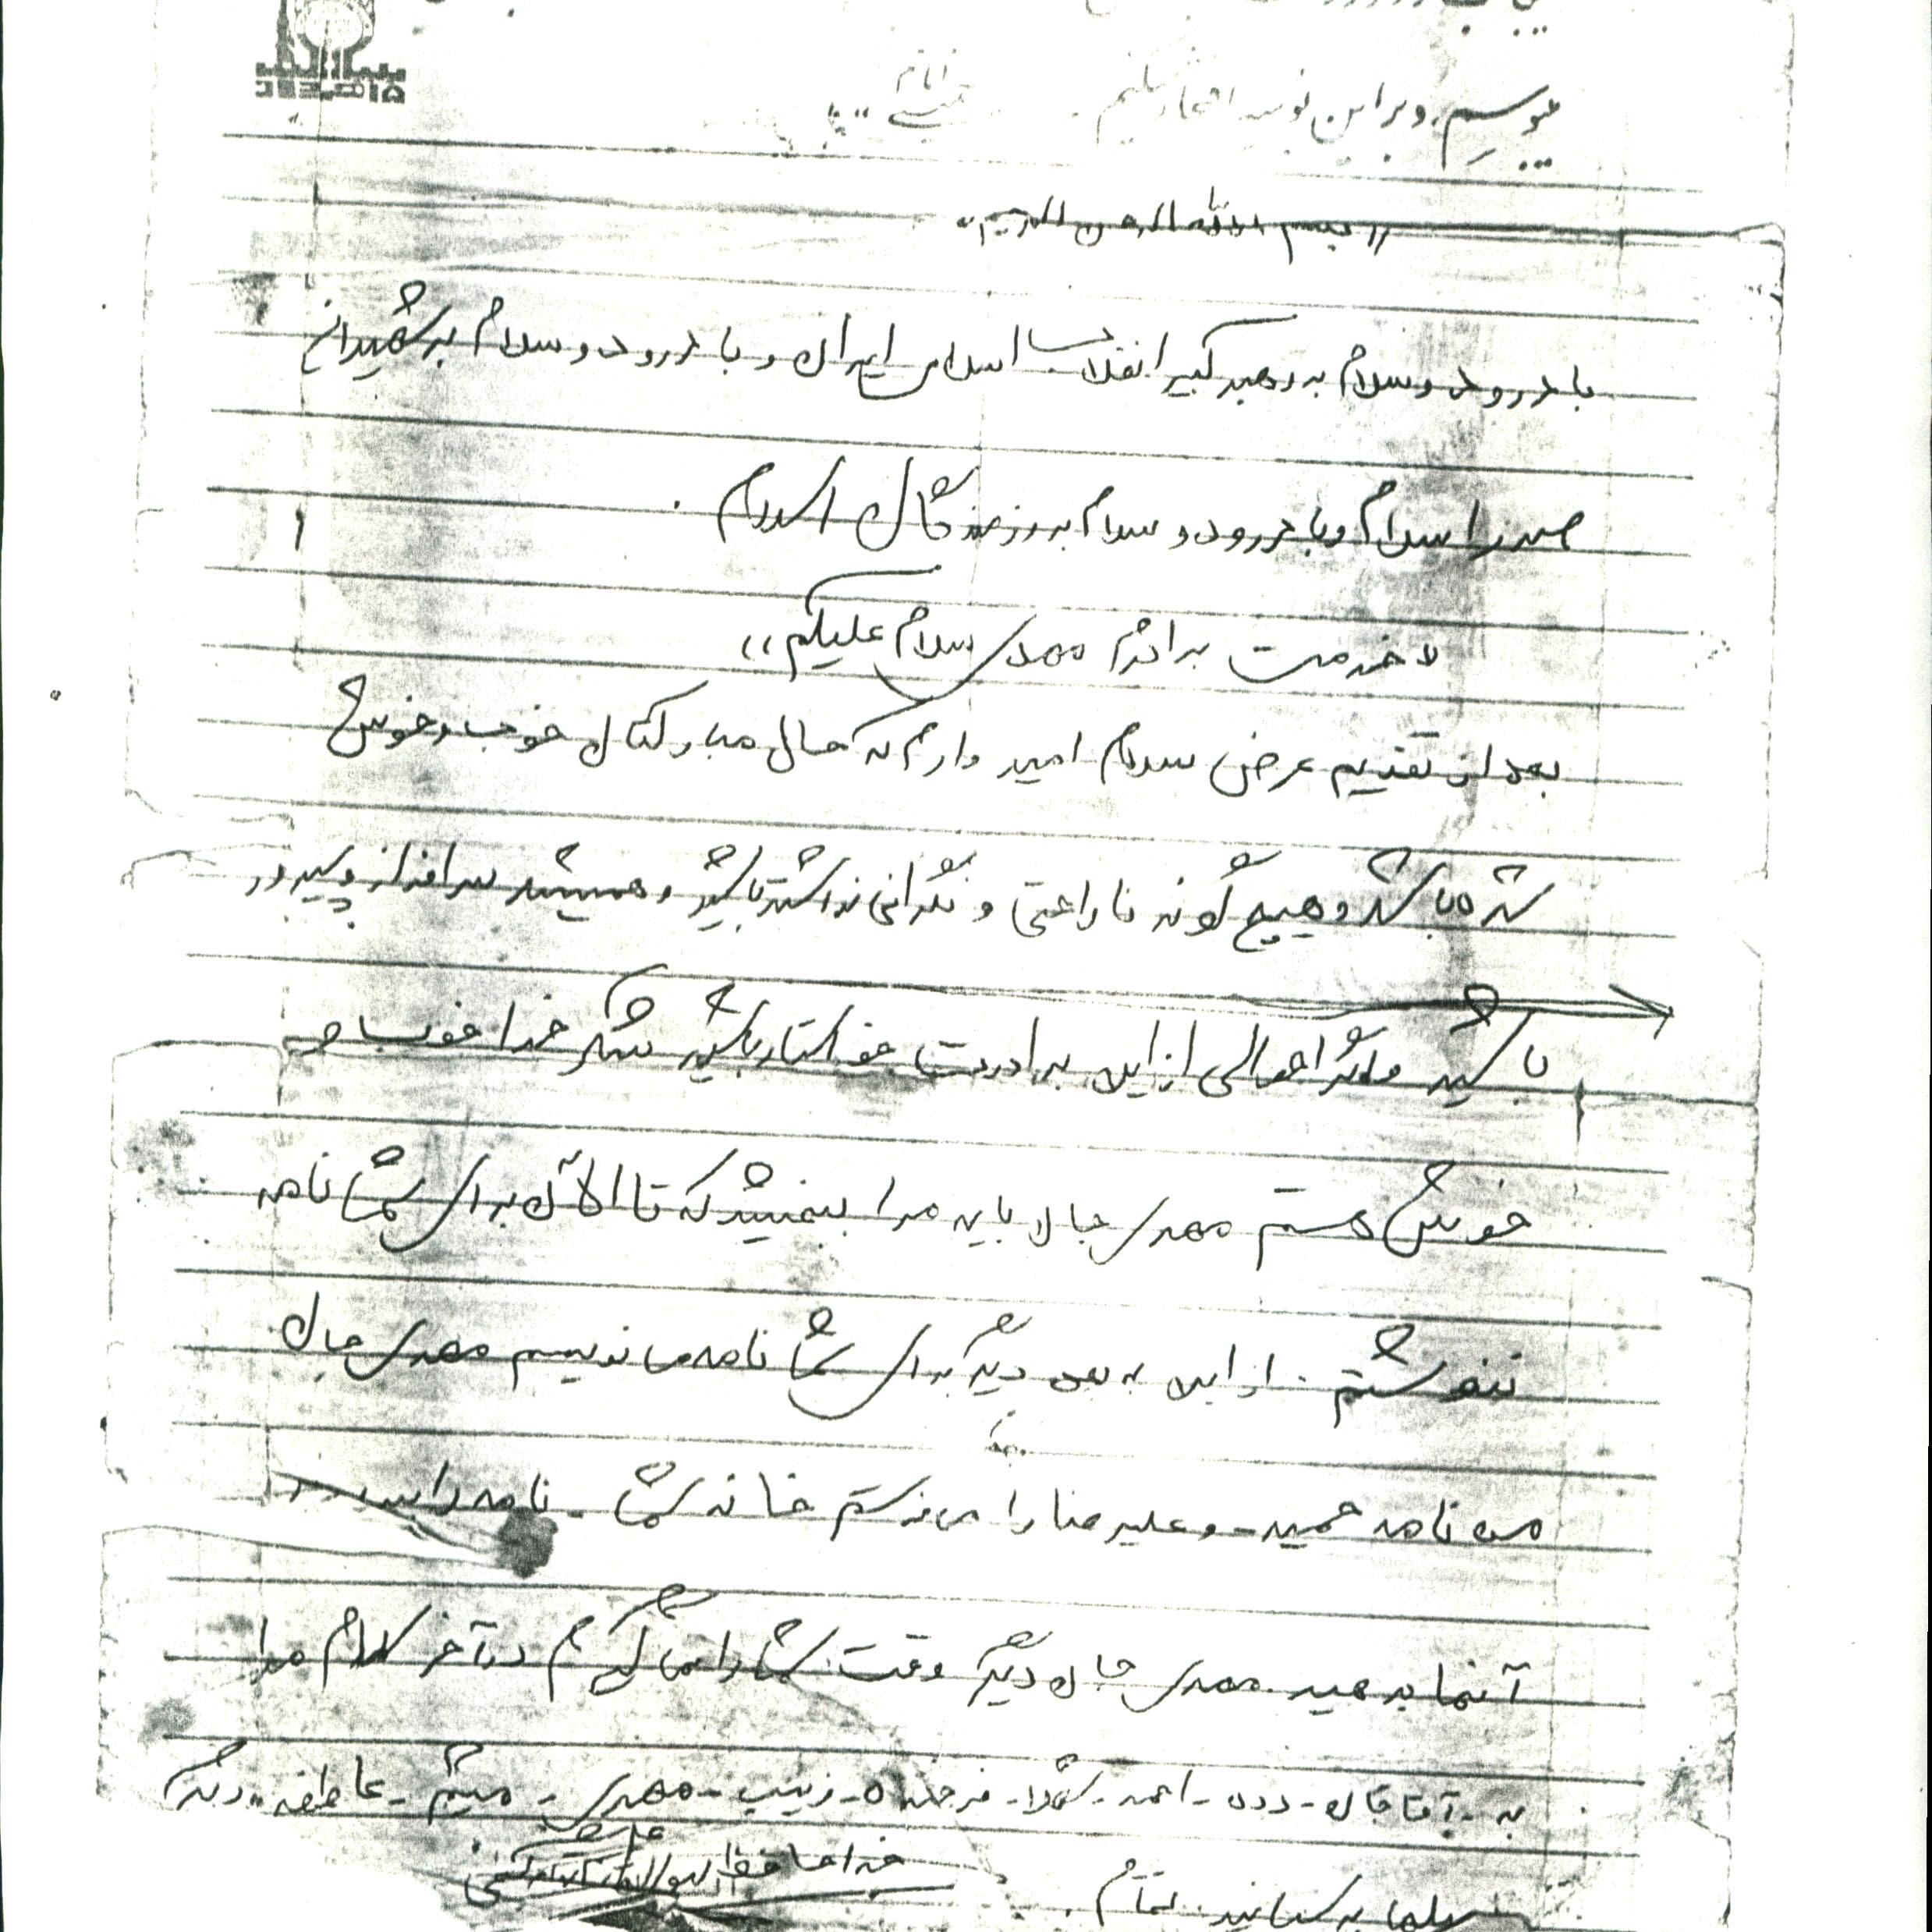 میوسیم. و بر این نوید افتخار میکنیم. امام خمینی
بنیاد شهید
«بسم الله الرحمن الرحیم»
با درود و سلام به رهبر کبیر انقلاب اسلامی ایران و با درود و سلام به شهیدان
صدر اسلام و با درود و سلام به رزمندگان اسلام.
خدمت برادرم مهدی سلام علیکم»
بعد از تقدیم عرض سلام امید وارم که حال مبارکتان خوب و خوش
شده باشد و هیچ گونه ناراحتی و نگرانی نداشته باشید و همیشه سرافراز و پیروز
باشید و اگر احوالی از این برادرت خواستار باشید شکر خدا خوب و
خوش هستم مهدی جان باید مرا ببخشید که تا الآن برای شما نامه
ننوشتم. از این به بعد دیگر برای شما نامه می نویسم مهدی جان
من نامه حمید - و علیرضا را می فرستم خانه شما - نامه را
آنها بدهید. مهدی جان دیگر وقت شما را نمی گیرم در آخر سلام مرا
به - آقاجان - ددن - احمد - شهلا - فرخنده - زینب - مهدی - میثم - عاطفه - دیگر
برسانید. تمام.
خداحافظ